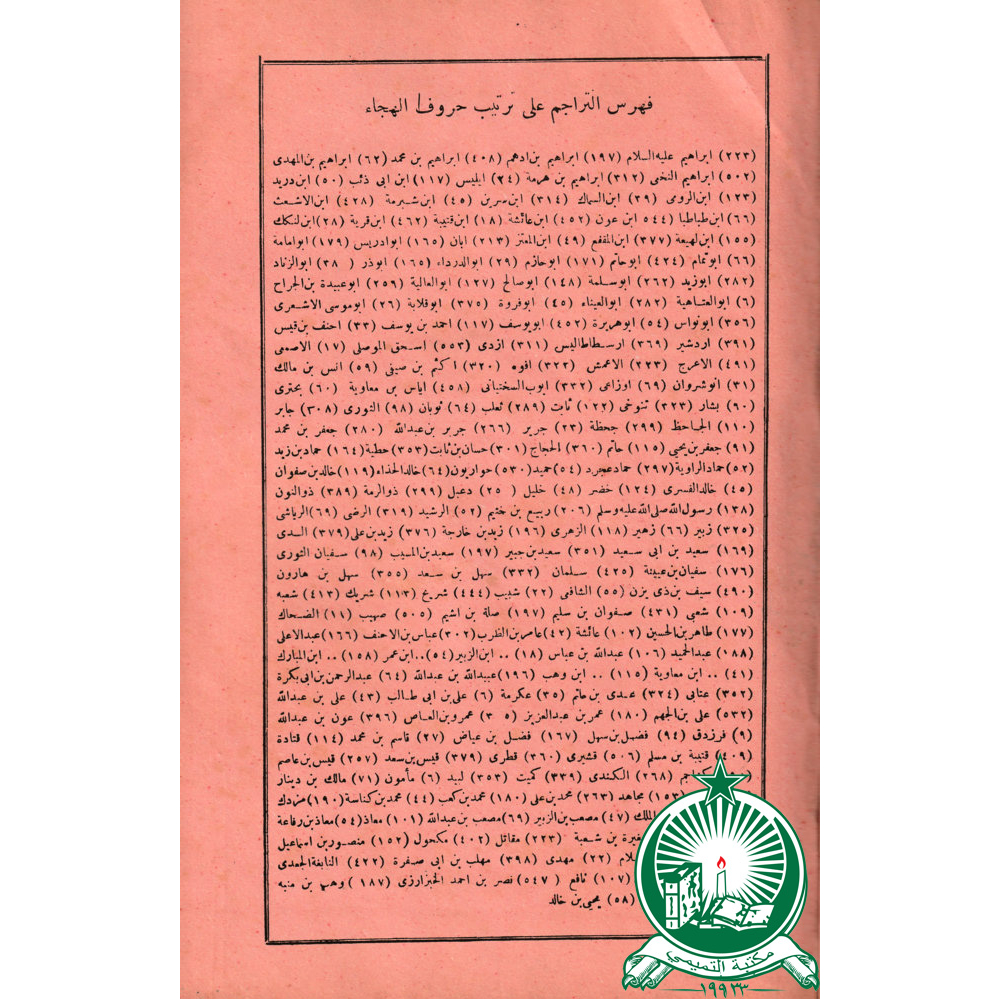 فهرس التراجم على ترتيب حروف الهجاء
(٢٢٣) ابراهيم عليه السلام (١٩٧) ابراهيم بن ادهم (٤٠٨) ابراهيم بن محمد (٦٢) ابراهيم بن المهدى
(٥٠٢) ابراهيم النخعى (٣١٢) ابراهيم بن هرمة (٢٤) ابليس (١١٧) ابن ابى ذئب (٥٠) ابن دريد
(١٢٣) ابن الرومى (٢٩) ابن السماك (٣١٤) ابن سيرين (٤٥) ابن شبرمة (٤٢٨) ابن الاشعث
(٦٦) ابن طباطبا (٥٤٤) ابن عون (٤٥٢) ابن عائشة (١٨) ابن قتيبة (٤٦٢) ابن قرية (٢٨) ابن لنكك
(١٥٥) ابن لهيعة (٣٧٧) ابن المقفع (٤٩) ابن المعتز (٢١٣) ابان (١٦٥) ابو ادريس (١٧٩) ابو امامة
(٦٦) ابو تمام (٤٢٤) ابو حاتم (١٧١) ابو حازم (٢٩) ابو الدرداء (١٦٥) ابو ذر (٣٨) ابو الزناد
(٢٨٢) ابو زيد (٢٦٢) ابو سلمة (١٤٨) ابو صالح (١٢٧) ابو العالية (٢٥٩) ابو عبيدة بن الجراح
(٦) ابو العتاهية (٢٨٢) ابو العيناء (٤٥) ابو فروة (٣٧٥) ابو قلابة (٢٦) ابو موسى الاشعرى
(٣٥٦) ابو نواس (٥٤) ابو هريرة (٤٥٢) ابو يوسف (١١٧) احمد بن يوسف (٣٣) احنف بن قيس
(٣٩١) اردشير (٣٦٩) ارسطاطاليس (٣١١) ازدى (٥٥٣) اسحق الموصلى (١٧) الاصمعى
(٤٩١) الاعرج (٢٢٣) الاعمش (٣٢٢) افوه (٣٢٠) اكثم بن صيفى (٥٩) انس بن مالك
(٣١) انوشروان (٦٩) اوزاعى (٣٣٢) ايوب السختيانى (٤٥٨) اياس بن معاوية (٦٠) بحترى
(٩٠) بشار (٣٢٣) تنوخى (١٢٢) ثابت (٢٨٩) ثعلب (٦٤) ثوبان (٩٨) الثورى (٣٠٨) جابر
(١١٠) الجاحظ (٢٩٩) جحظة (٢٣) جرير (٢٦٦) جرير بن عبدالله (٢٨٠) جعفر بن محمد
(٩١) جعفر بن يحيى (١١٥) حاتم (٣٦٠) الحجاج (٣٠١) حسان بن ثابت (٣٥٣) حطيئة (١٦٤) حماد بن زيد
(٥٢) حماد الراوية (٢٩٧) حماد عجرد (٥٤) حميد (٥٣٠) حواريون (٦٤) خالد الحذاء (١١٩) خالد بن صفوان
(٤٥) خالد القسرى (١٢٤) خضر (٤٨) خليل (٢٥) دعبل (٢٩٩) ذو الرمة (٣٨٩) ذو النون
(١٣٨) رسول الله صلى الله عليه وسلم (٢٠٦) ربيع بن خثيم (٥٢) الرشيد (٣١٩) الرضى (٦٩) الرياشى
(٣٢٥) زبير (٦٦) زهير (١١٨) الزهرى (١٩٦) زيد بن خارجة (٣٧٦) زيد بن على (٣٧٩) السدى
(١٦٩) سعيد بن ابى سعيد (٣٥١) سعيد بن جبير (١٩٧) سعيد بن المسيب (٩٨) سفيان الثورى
(١٧٦) سفيان بن عيينة (٤٢٥) سلمان (٣٣٢) سهل بن سعد (٣٥٥) سهل بن هارون
(٤٩٠) سيف بن ذى يزن (٥٥) الشافعى (٢٢) شبيب (٤٤٤) شريح (١١٣) شريك (٤١٣) شعبه
(١٠٩) شعبى (٤٣١) صفوان بن سليم (١٩٧) صلة بن اشيم (٥٠٥) صهيب (١٧) الضحاك
(١٧٧) طاهر بن الحسين (١٠٢) عائشة (٤٢) عامر بن الظرب (٣٠٢) عباس بن الاحنف (١٦٦) عبد الاعلى
(١٨٨) عبد الحميد (١٠٦) عبدالله بن عباس (١٨) .. ابن الزبير (٥٤) .. ابن عمر (١٥٨) .. ابن المبارك
(٤١) .. ابن معاوية (١١٥) .. ابن وهب (١٩٦) عبيدالله بن عبدالله (٦٤) عبد الرحمن بن ابى بكرة
(٣٥٢) عتابى (٣٢٤) عدى بن حاتم (٣٥) عكرمة (٦) على بن ابى طالب (٤٣) على بن عبدالله
(٥٣٢) على بن الجهم (١٨٠) عمر بن عبد العزيز (٣٠٥) عمرو بن العاص (٣٩٦) عون بن عبدالله
(٩) فرزدق (٩٤) فضل بن سهل (١٦٧) فضل بن عياض (٢٧) قاسم بن محمد (١١٤) قتادة
(٤٠٩) قتيبة بن مسلم (٥٠٦) قشيرى (٣٦٠) قطرى (٣٧٩) قيس بن سعد (٢٥٧) قيس بن عاصم
(٢٦٨) الكندى (٣٣٩) كميت (٣٥٣) لبيد (٦) مأمون (٧١) مالك بن دينار
(١٥٣) مجاهد (٢٦٣) محمد بن على (١٨٠) محمد بن كعب (٤٤) محمد بن كناسة (١٩٠) مزدك
الملك (٤٧) مصعب بن الزبير (٦٩) مصعب بن عبدالله (١٠١) معاذ (٥٤) معاذ بن رفاعة
بن شعبة (٢٢٣) مقاتل (٤٠٢) مكحول (١٥٢) منصور بن اسماعيل
(٢٢) مهدى (٣٩٨) مهلب بن ابى صفرة (٤٢٢) النابغة الجعدى
(١٠٧) نافع (٥٤٧) نصر بن احمد الخبزارزى (١٨٧) وهب بن منبه
(٥٨) يحيى بن خالد
مكتبة التميمي
١٩٩٣